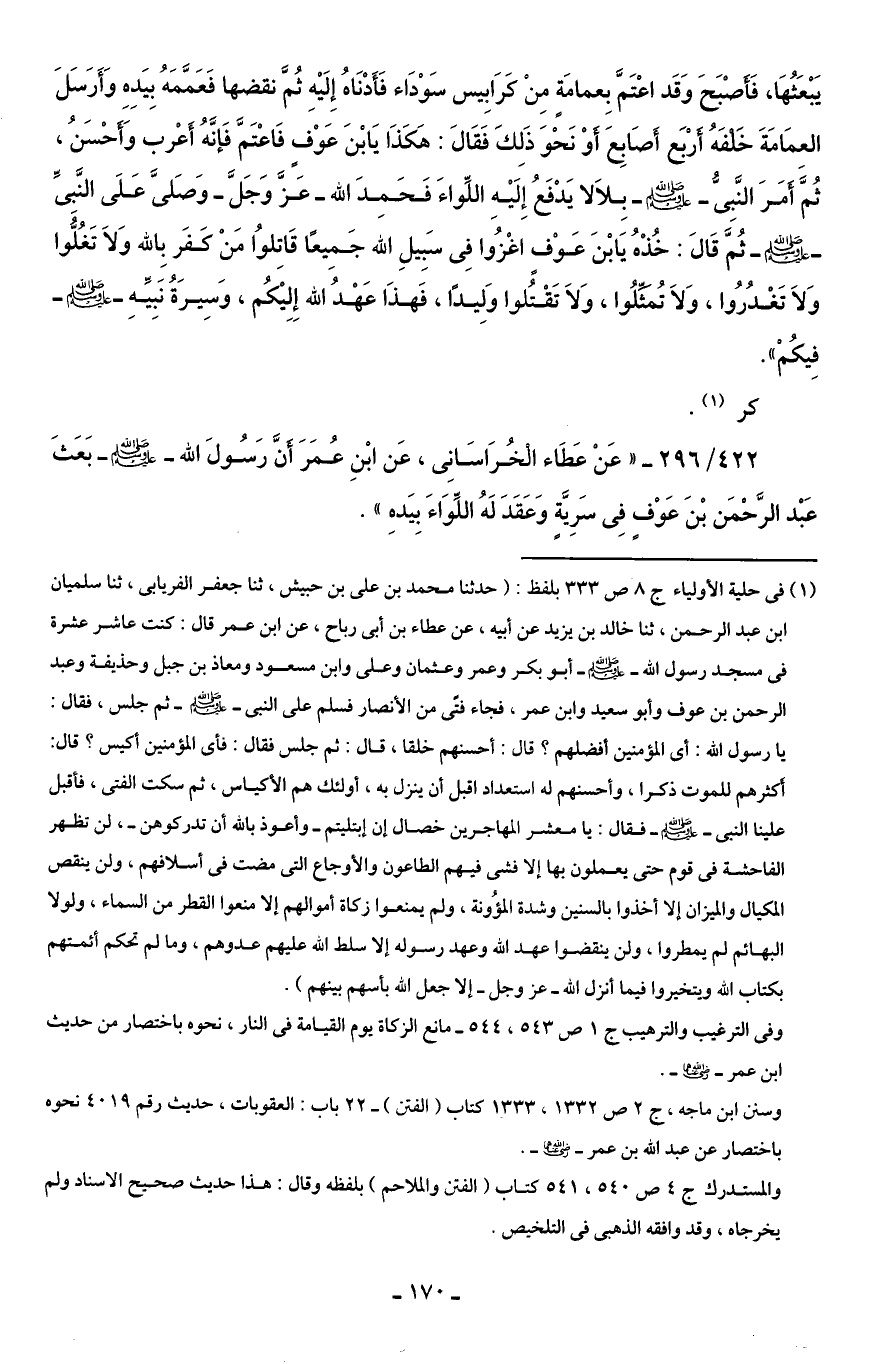 يَبْعَثُهَا، فَأَصْبَحَ وَقَد اعْتَمَّ بِعمامَةٍ مِنْ كَرَابِيس سَوْدَاء فَأَدْنَاهُ إِلَيْهِ ثُمَّ نقضها فَعَمَّمَهُ بِيَدِهِ وَأَرسَلَ
العِمَامَةَ خَلْفَهُ أَرْبَع أَصَابِعَ أَوْ نَحْوَ ذَلِكَ فَقَالَ : هَكَذَا يَابْنَ عَوْفٍ فَاعْتَمَّ فَإِنَّهُ أَعْرب وَأَحْسَنُ ،
ثُمَّ أَمَرَ النَّبِىُّ ـ ﷺ ـ بِلاَلا يَدْفَعُ إِلَيْهِ اللِّواءَ فَحَمِدَ الله ـ عَزَّ وَجَلَّ ـ وَصَلىَّ عَلَى النَّبِىِّ
ـ ﷺ ـ ثُمَّ قَالَ : خُذْهُ يَابْنَ عَوْفٍ اغْزُوا فِى سَبِيلِ الله جَمِيعًا قَاتِلُوا مَنْ كَفَر بِالله وَلاَ تَغُلُّوا
وَلاَ تَغْدُرُوا ، وَلاَ تُمَثِّلُوا ، وَلاَ تَقْتُلوا وَلِيدًا ، فَهذَا عَهْدُ الله إِلَيْكُم ، وَسِيرَةُ نَبِيِّهِ ـ ﷺ ـ
فِيكُمْ» .
كر (١) .
٤٢٢/ ٢٩٦ ـ « عَنْ عَطَاء الْخُرَاسَانِى ، عَن ابْنِ عُمَرَ أَنَّ رَسُولَ الله ـ ﷺ ـ بَعَثَ
عَبْد الرَّحْمَن بْنَ عَوْفٍ فِى سَرِيَّةٍ وَعَقَدَ لَهُ اللِّوَاءَ بِيَدِهِ » .
(١) فى حلية الأولياء ج ٨ ص ٣٣٣ بلفظ : ( حدثنا محمد بن على بن حبيش ، ثنا جعفر الفريابى ، ثنا سلميان
ابن عبد الرحمن ، ثنا خالد بن يزيد عن أبيه ، عن عطاء بن أبى رباح ، عن ابن عمر قال : كنت عاشر عشرة
فى مسجد رسول الله ـ ﷺ ـ أبو بكر وعمر وعثمان وعلى وابن مسعود ومعاذ بن جبل وحذيفة وعبد
الرحمن بن عوف وأبو سعيد وابن عمر ، فجاء فتًى من الأنصار فسلم على النبى ـ ﷺ ـ ثم جلس ، فقال :
يا رسول الله : أى المؤمنين أفضلهم ؟ قال : أحسنهم خلقا ، قال : ثم جلس فقال : فأى المؤمنين أكيس ؟ قال:
أكثرهم للموت ذكرا ، وأحسنهم له استعداد اقبل أن ينزل به ، أولئك هم الأكياس ، ثم سكت الفتى ، فأقبل
علينا النبى ـ ﷺ ـ فقال : يا معشر المهاجرين خصال إن إبتليتم ـ وأعوذ بالله أن تدركوهن ـ ، لن تظهر
الفاحشة فى قوم حتى يعملون بها إلا فشى فيهم الطاعون والأوجاع التى مضت فى أسلافهم ، ولن ينقص
المكيال والميزان إلا أخذوا بالسنين وشدة المؤُونة ، ولم يمنعوا زكاة أموالهم إلا منعوا القطر من السماء ، ولولا
البهائم لم يمطروا ، ولن ينقضوا عهد الله وعهد رسوله إلا سلط الله عليهم عدوهم ، وما لم تحكم أئمتهم
بكتاب الله ويتخيروا فيما أنزل الله ـ عز وجل ـ إلا جعل الله بأسهم بينهم ) .
وفى الترغيب والترهيب ج ١ ص ٥٤٣ ، ٥٤٤ ـ مانع الزكاة يوم القيامة فى النار ، نحوه باختصار من حديث
ابن عمر ـ رضي الله عنهما ـ .
وسنن ابن ماجه ، ج ٢ ص ١٣٣٢ ، ١٣٣٣ كتاب ( الفتن ) ـ ٢٢ باب : العقوبات ، حديث رقم ٤٠١٩ نحوه
باختصار عن عبد الله بن عمر ـ رضي الله عنهما ـ .
والمستدرك ج ٤ ص ٥٤٠ ، ٥٤١ كتاب ( الفتن والملاحم ) بلفظه وقال : هذا حديث صحيح الاسناد ولم
يخرجاه ، وقد وافقه الذهبى فى التلخيص .
ـ ١٧٠ ـ